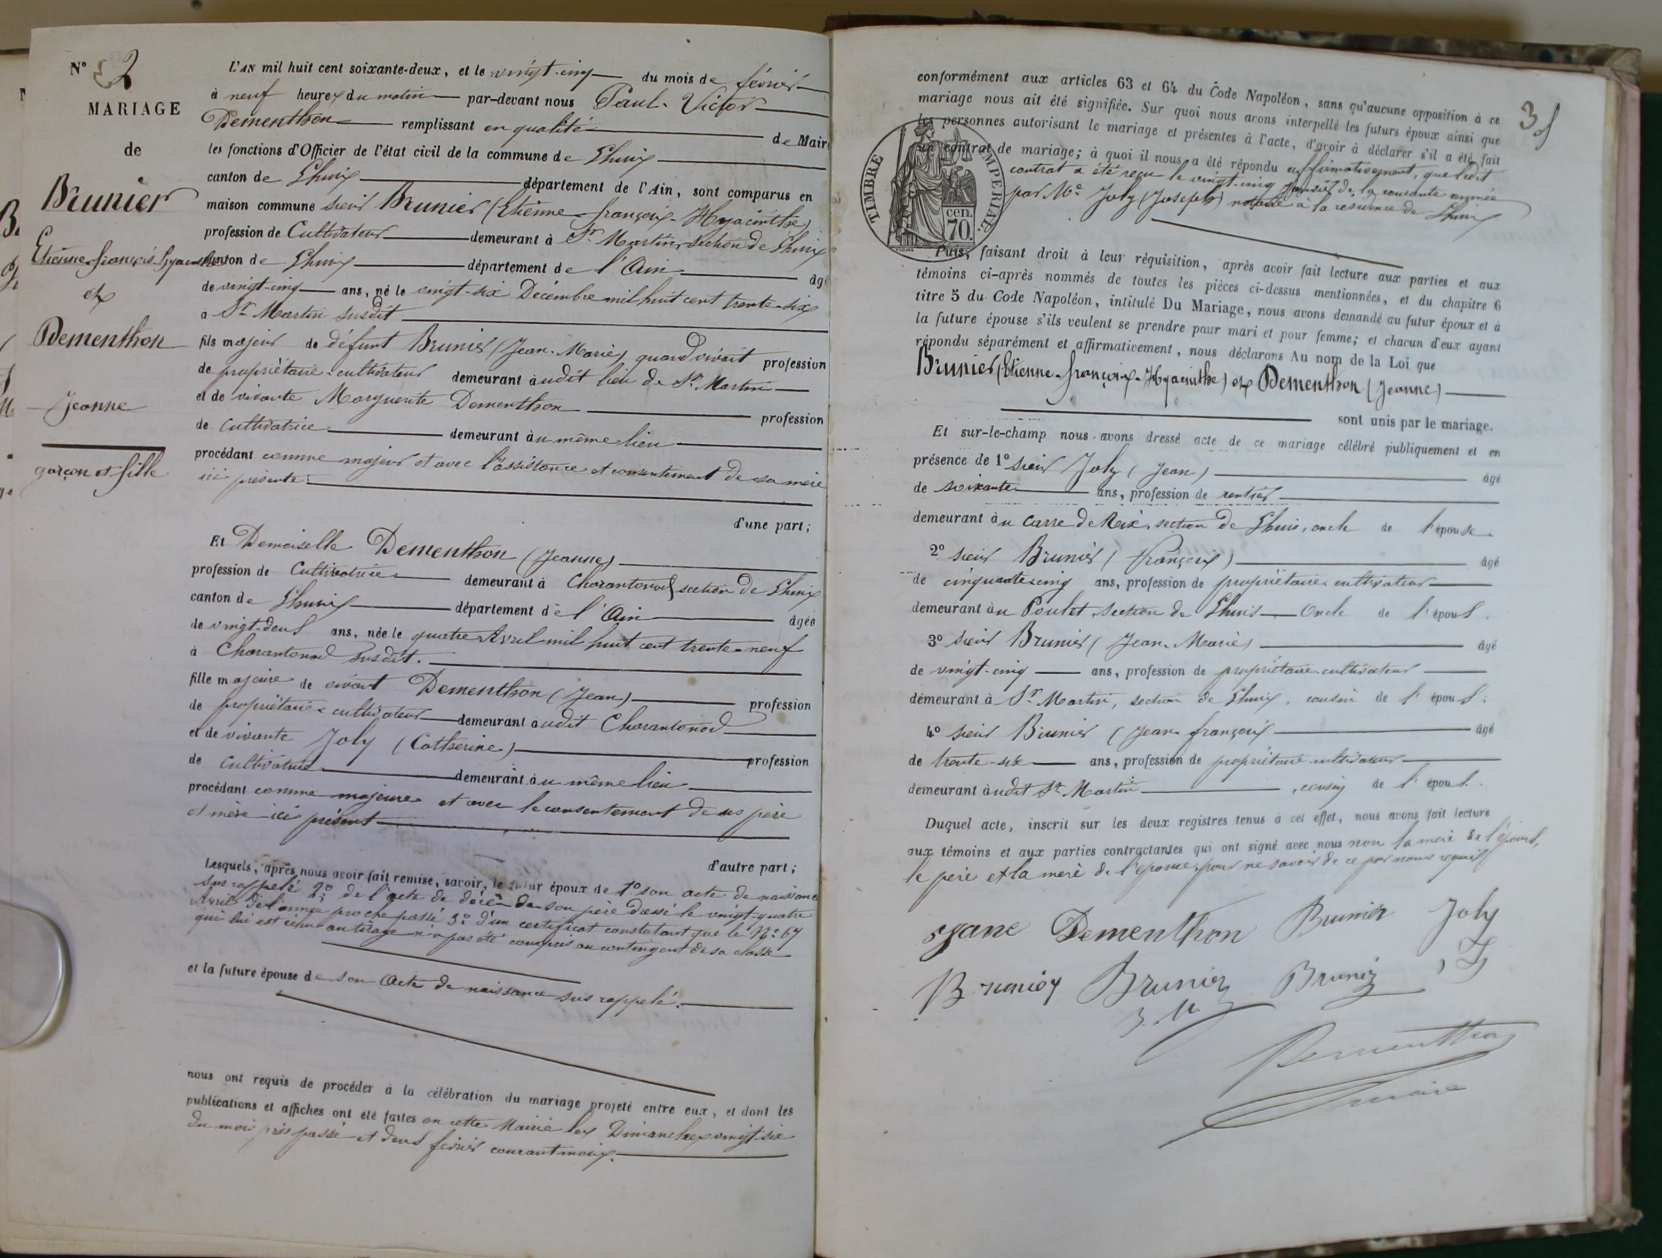 N° 2
MARIAGE
de
Brunier
Etienne françois hyacinthe
et
Dementhon
Jeanne
garçon et fille
L'AN mil huit cent soixante-deux, et le vingt-cinq du mois de février
à neuf heures du matin par-devant nous Paul-Victor
Dementhon remplissant en qualité de Maire
les fonctions d'Officier de l'état civil de la commune de Lhuis
canton de Lhuis département de l'Ain, sont comparus en
maison commune sieur Brunier (Etienne-françois-Hyacinthe)
profession de Cultivateur demeurant à St Martin, section de Lhuis
canton de Lhuis département de l'Ain âgé
de vingt-cinq ans, né le vingt-six Décembre mil huit cent trente-six
à St Martin susdit
fils majeur de défunt Brunier (Jean-Marie) quand vivait profession
de propriétaire-cultivateur demeurant audit lieu de St Martin
et de vivante Marguerite Dementhon profession
de cultivatrice demeurant au même lieu
procédant comme majeur et avec l'assistance et consentement de sa mère
ici présente
d'une part;
Et Demoiselle Dementhon (Jeanne)
profession de Cultivatrice demeurant à Charantonod section de Lhuis
canton de Lhuis département de l'Ain âgée
de vingt-deux ans, née le quatre Avril mil huit cent trente-neuf
à Charantonod susdit.
fille majeure de vivant Dementhon (Jean) profession
de propriétaire cultivateur demeurant audit Charantonod
et de vivante Joly (Catherine) profession
de cultivatrice demeurant au même lieu
procédant comme majeure et avec le consentement de ses père
et mère ici présent
d'autre part;
Lesquels, après nous avoir fait remise, savoir, le futur époux de 1° son acte de naissance
sus rappelé 2° de l'acte de décès de son père dressé le vingt-quatre
Avril de l'année proche passé 3° d'un certificat constatant que le N° 67
qui lui est échu au tirage n'a pas été compris au contingent de sa classe
et la future épouse de son Acte de naissance sus rappelé.
nous ont requis de procéder à la célébration du mariage projeté entre eux, et dont les
publications et affiches ont été faites en cette Mairie les Dimanches vingt-six
du mois près passé et deux février courant mois.
3
conformément aux articles 63 et 64 du Code Napoléon, sans qu'aucune opposition à ce
mariage nous ait été signifiée. Sur quoi nous avons interpellé les futurs époux ainsi que
les personnes autorisant le mariage et présentes à l'acte, d'avoir à déclarer s'il a été fait
un contrat de mariage; à quoi il nous a été répondu affirmativement, que ledit
contrat a été reçu le vingt-cinq janvier de la courante année
par Me Joly (Joseph) notaire à la résidence de Lhuis
TIMBRE IMPERIAL
cen.
70.
Puis, faisant droit à leur réquisition, après avoir fait lecture aux parties et aux
témoins ci-après nommés de toutes les pièces ci-dessus mentionnées, et du chapitre 6
titre 5 du Code Napoléon, intitulé Du Mariage, nous avons demandé au futur époux et à
la future épouse s'ils veulent se prendre pour mari et pour femme; et chacun d'eux ayant
répondu séparément et affirmativement, nous déclarons Au nom de la Loi que
Brunier (Etienne-françois-Hyacinthe) et Dementhon (Jeanne)
sont unis par le mariage.
Et sur-le-champ nous avons dressé acte de ce mariage célébré publiquement et en
présence de 1° sieur Joly (Jean) âgé
de soixante ans, profession de rentier
demeurant au Carre de Roix, section de Lhuis, oncle de l'épouse
2° sieur Brunier (françois) âgé
de cinquante cinq ans, profession de propriétaire cultivateur
demeurant au Poulet, section de Lhuis oncle de l'époux.
3° sieur Brunier (Jean-Marie) âgé
de vingt-cinq ans, profession de propriétaire-cultivateur
demeurant à St Martin, section de Lhuis, cousin de l'époux.
4° sieur Brunier (Jean-françois) âgé
de trente-six ans, profession de propriétaire-cultivateur
demeurant audit St Martin, cousin de l'époux.
Duquel acte, inscrit sur les deux registres tenus à cet effet, nous avons fait lecture
aux témoins et aux parties contractantes qui ont signé avec nous non la mère de l'époux,
le père et la mère de l'épouse pour ne savoir de ce par nous requis
Dementhon Brunier Joly
Brunier Brunier Brunier
Dementhon
maire